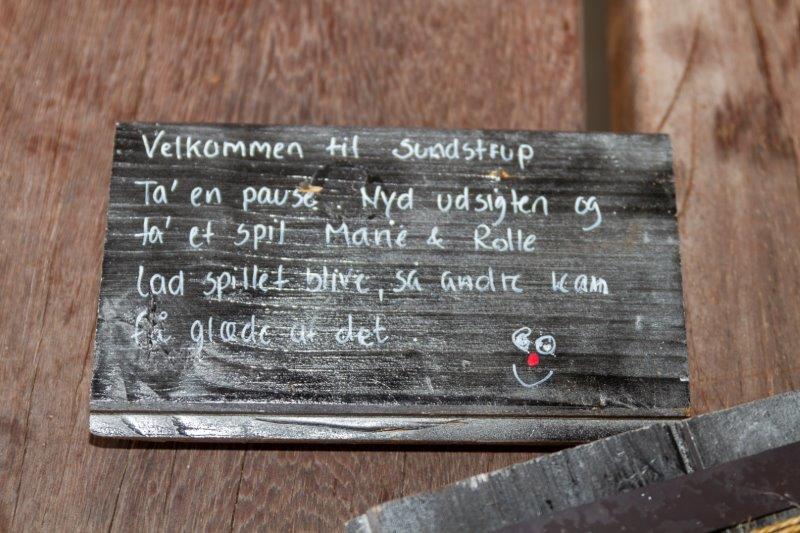 Velkommen til Sundstrup
Ta' en pause. Nyd udsigten og
ta' et spil Marie & Rolle
lad spillet blive, så andre kan
få glæde af det.